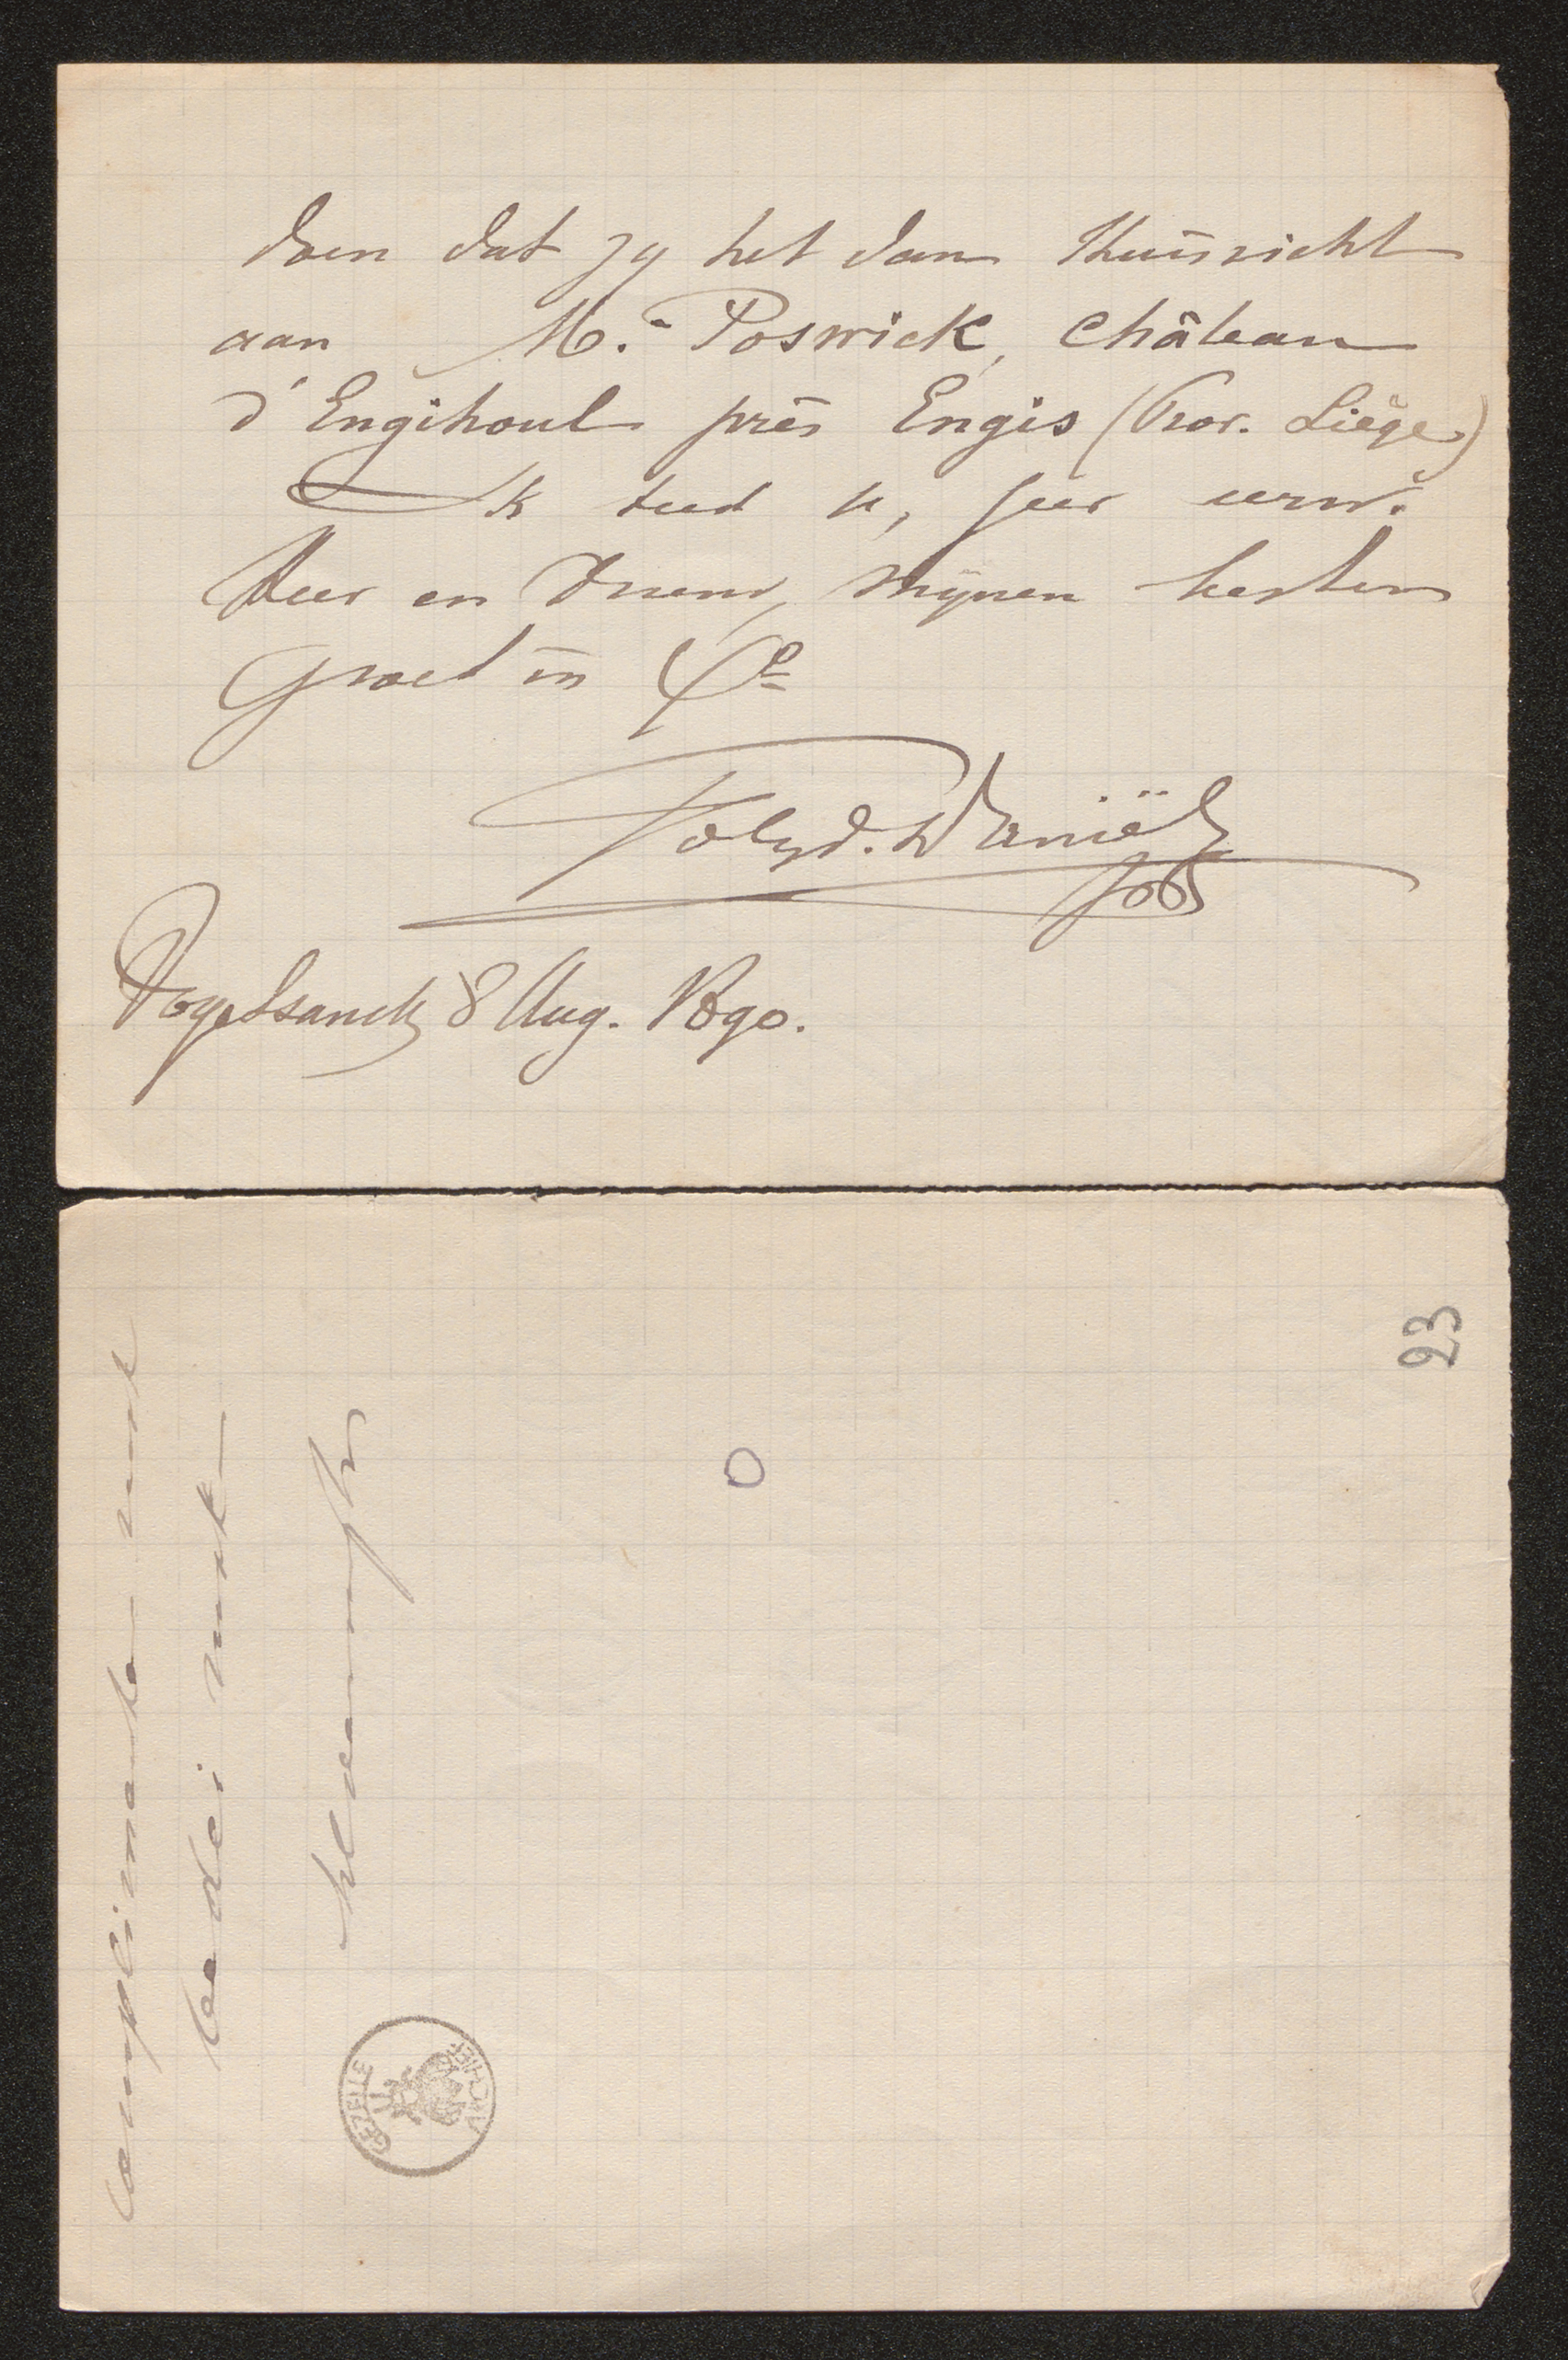 doen dat zy het dan thuisricht
aan M.r Poswick, Château
d'Engihoul près Engis (Prov. Liège)
Ik bied u, zeer eerw.
Heer en Vriend, mynen besten
Groet in X.o
Polyd. Daniëls
pbr
Vogelsanck 8 Aug. 1890.
23
complimenten
GEZELLE
ARCHIEF